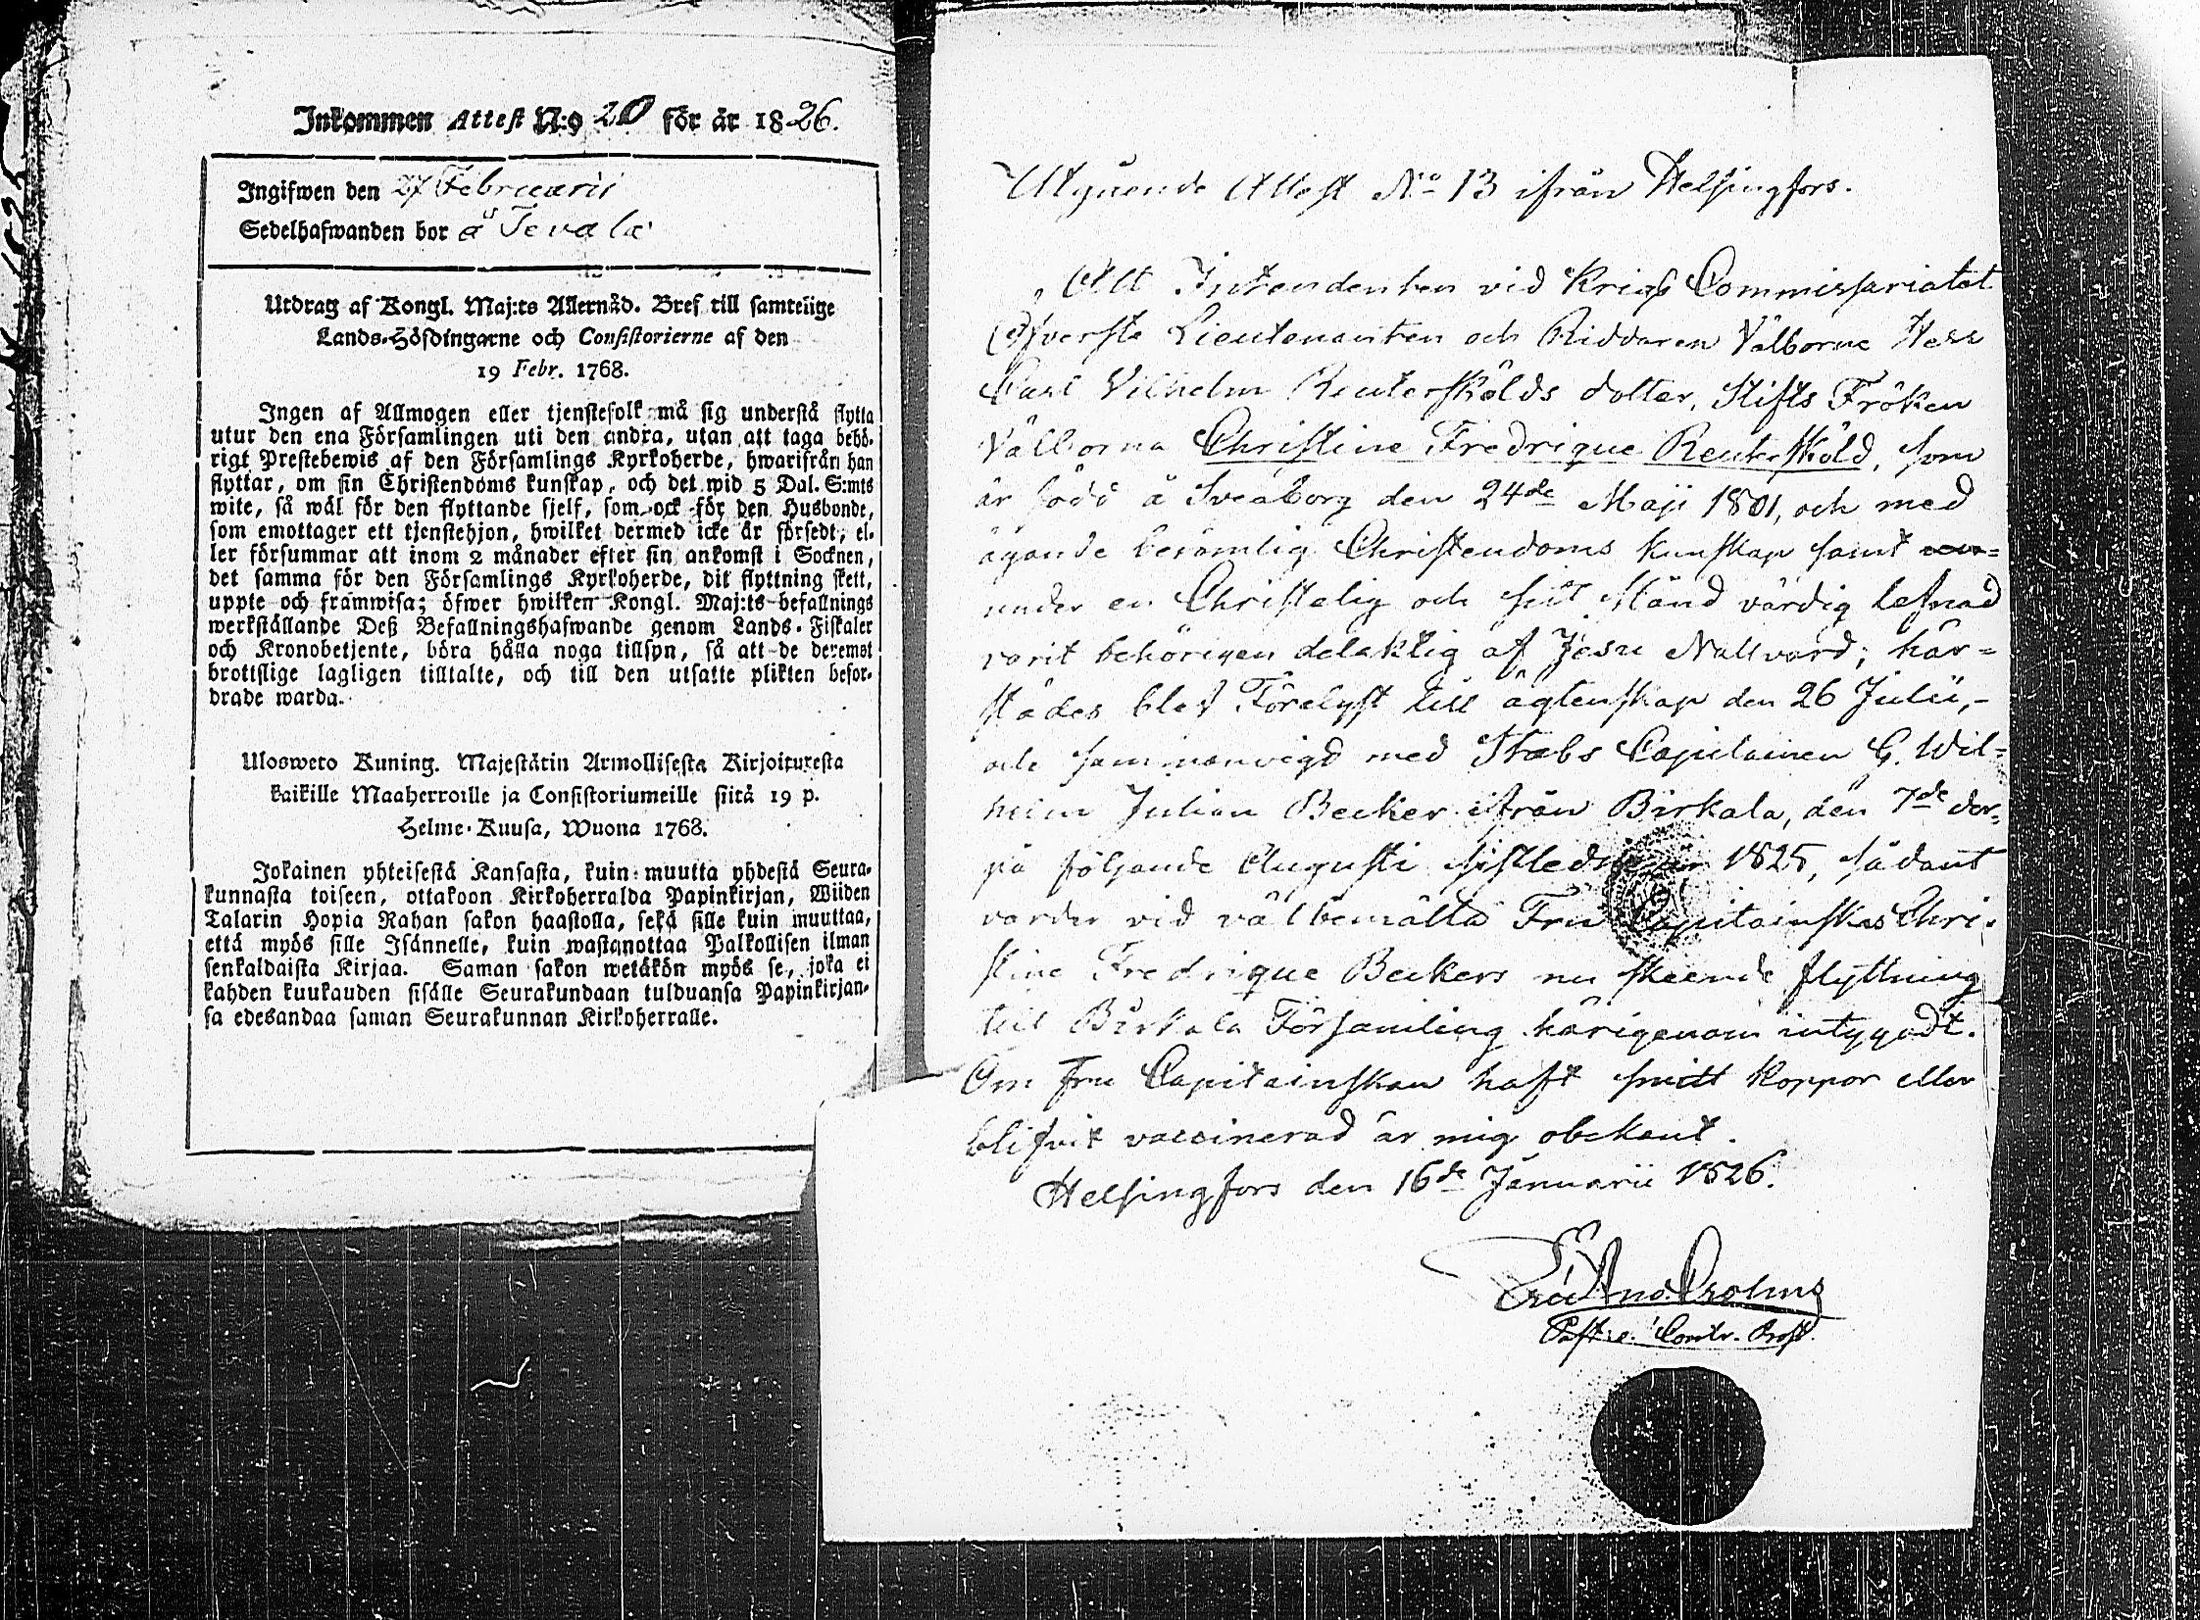 Inkommen Attest N:o 20 för år 1826.
Ingifwen den 27 Februarii
Sedelhafwanden bor å Tevala
Utdrag af Kongl. Maj:ts Allernåd. Bref till samtelige
Lands-Höfdingarne och Consistorierne af den
19 Febr. 1768.
Ingen af Allmogen eller tjenstefolk må sig understå flytta
utur den ena Församlingen uti den andra, utan att taga behö-
rigt Prestebewis af den Församlings Kyrkoherde, hwarifrån han
flyttar, om sin Christendoms kunskap, och det wid 5 Dal. S:mts
wite, så wäl för den flyttande sjelf, som ock för den Husbonde,
som emottager ett tjenstehjon, hwilket dermed icke är försedt, el-
ler försummar att inom 2 månader efter sin ankomst i Socknen,
det samma för den Församlings Kyrkoherde, dit flyttning skett,
uppte och framwisa; öfwer hwilken Kongl. Maj:ts befallnings
werkställande Deß Befallningshafwande genom Lands-Fiskaler
och Kronobetjente, böra hålla noga tillsyn, så att de deremot
brottslige lagligen tilltalte, och till den utsatte plikten befor-
drade warda.
Ulosweto Kuning. Majestätin Armollisesta Kirjoituxesta
kaikille Maaherroille ja Consistoriumeille siitä 19 p.
Helme-Kuusa, Wuona 1768.
Jokainen yhteisestä Kansasta, kuin muutta yhdestä Seura-
kunnasta toiseen, ottakoon Kirkoherralda Papinkirjan, Wiiden
Talarin Hopia Rahan sakon haastolla, sekä sille kuin muuttaa,
että myös sille Isännelle, kuin wastanottaa Palkollisen ilman
senkaldaista Kirjaa. Saman sakon wetäkön myös se, joka ei
kahden kuukauden sisälle Seurakundaan tulduansa Papinkirjan-
sa edesandaa saman Seurakunnan Kirkoherralle.
Utgående Attest No 13 ifrån Helsingfors.
Att Intendenten vid Krigs Commissariatet
Öfverste Lieutenanten och Riddaren Välborne Herr
Carl Vilhelm Reuterskölds dotter, Stifts Fröken
Välborna Christine Fredrique Reuterskôld, som
är född å Sveaborg den 24de Maji 1801, och med
ägande berömlig Christendoms kunskap samt
under en Christelig och sitt stånd värdig lefnad
varit behörigen delaktig af Jesu Nattvard; här=
städes blef Förelyst till ägtenskap den 26 Julii,-
och sammanvigd med Stabs Capitainen G. Wil=
helm Julian Becker ifrån Birkala, den 7de der=
på följande Augusti sistledne år 1825, sådant
varder vid välbemälta Fru Capitainskas Chri-
stine Fredrique Beckers nu skeende flyttning
till Birkala Församling härigenom intygadt.
Om Fru Capitainskan haft smitt koppor eller
blifvit vaccinerad är mig obekant.
Helsingfors den 16de Januarii 1826.
Past: e. Contr. Prost.